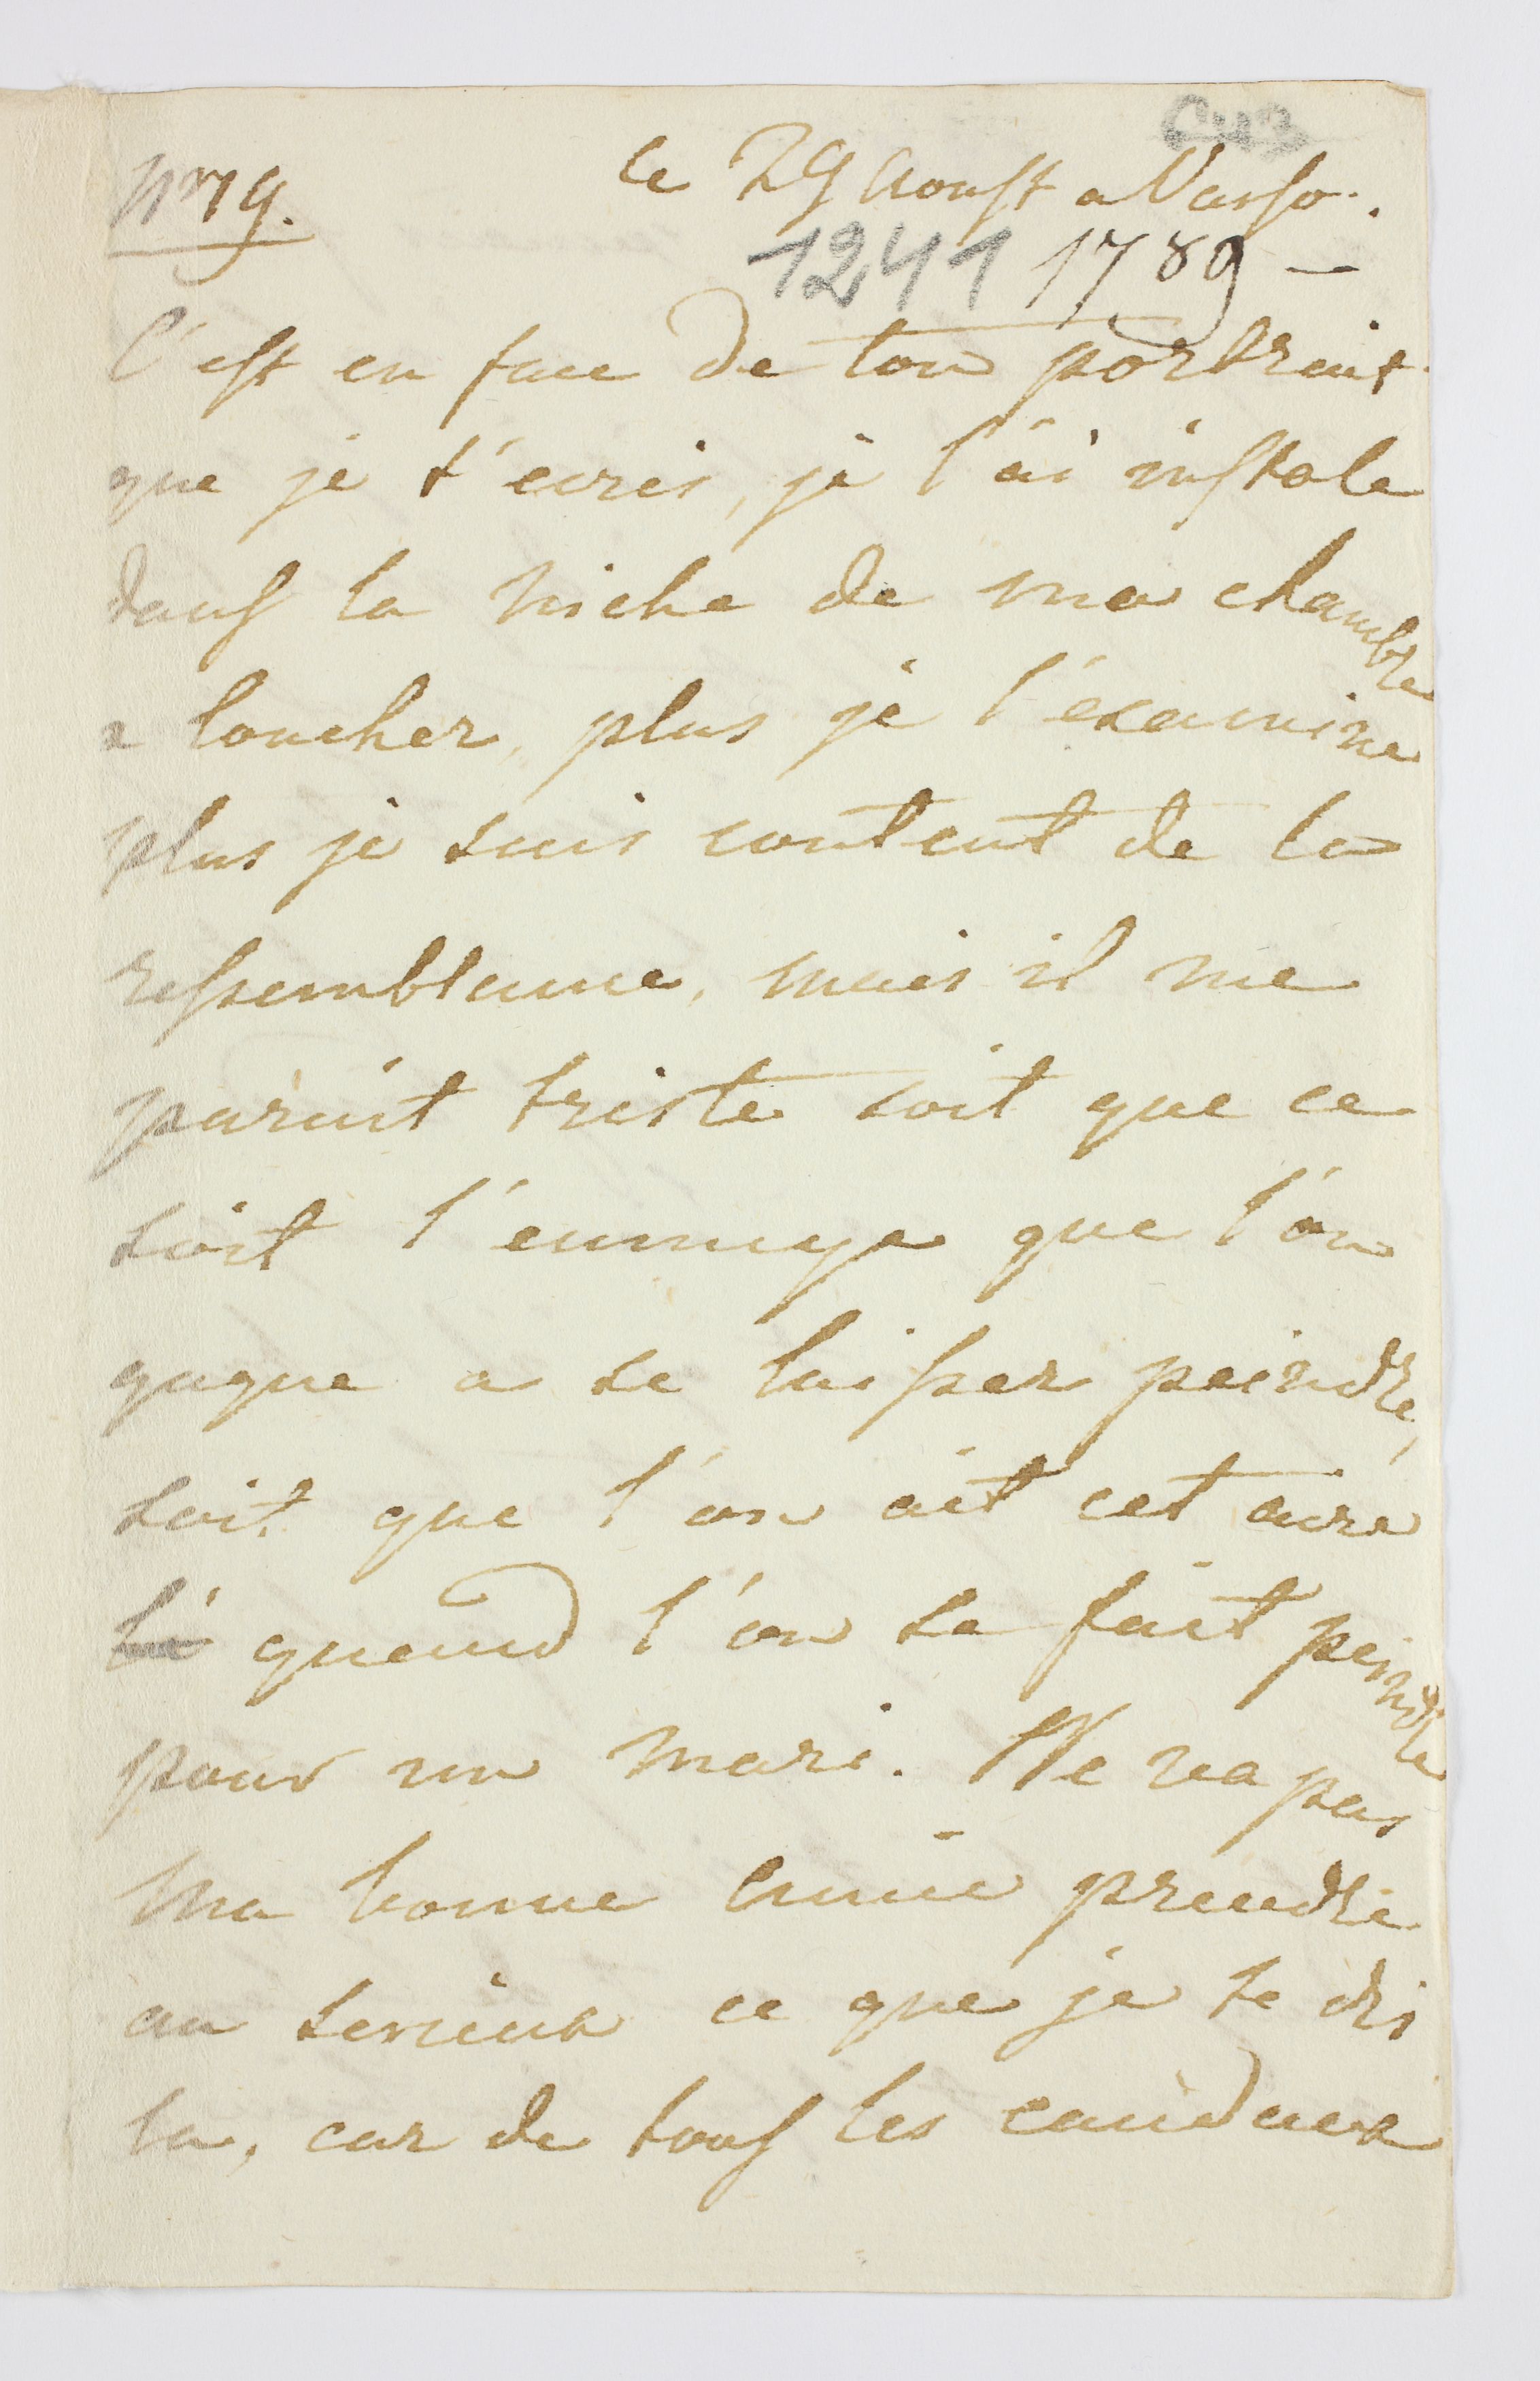 Nº 79. le 29 Aoust a Varso.
1241 1789 –
C'est en face de ton portrait
que je t'ecris, je l'ai instale
dans la niche de ma chambre
a coucher, plus je l'examine
plus je suis content de la
ressemblance, mais il me
parait triste soit que ce
soit l'ennuye que l'on
gagne a se laisser peindre,
soit que l'on ait cet aire
là quand l'on se fait peindre
pour un mari. Ne va pas
Ma bonne Amie prendre
au serieux ce que je te dis
la, car de tous les caideaux